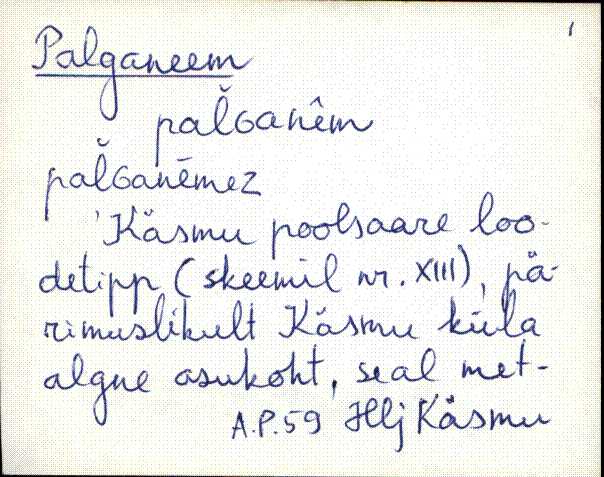 1
Palganeem
pal̆ɢanêm
pal̆ɢanēmez
'Käsmu poolsaare loo-
detipp (skeemil nr. XIII), pä-
rimuslikult Käsmu küla
algne asukoht, seal met-
A.P.59 Hlj Käsmu